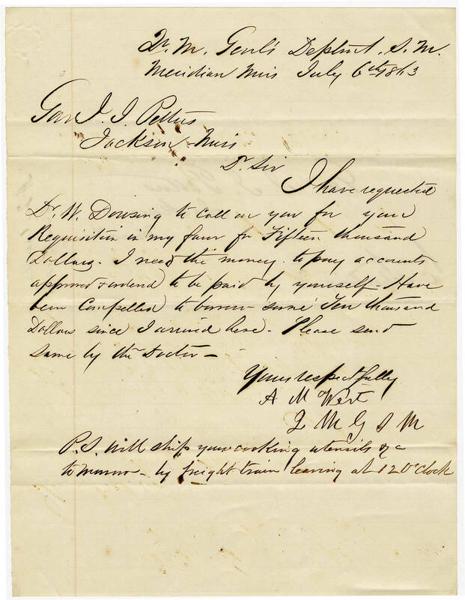 Qr. M. Genl's Deptmt. S. M.
Meridian Miss July 6th 1863
Gov J. J. Pettus
Jackson Miss
Dr Sir
I have requested
Dr. W. Dowsing to call on you for your
Requisition in my favor for Fifteen thousand
Dollars. I need the money to pay accounts
approved & ordered to be paid by yourself. Have
been compelled to borrow some Ten thousand
Dollars since I arrived here. Please send
same by the Doctor—
Yours respectfully
A M West
Q M G S M
P.S. Will ship your cooking utensils &c
tomorrow – by freight train leaving at 12 O'clock